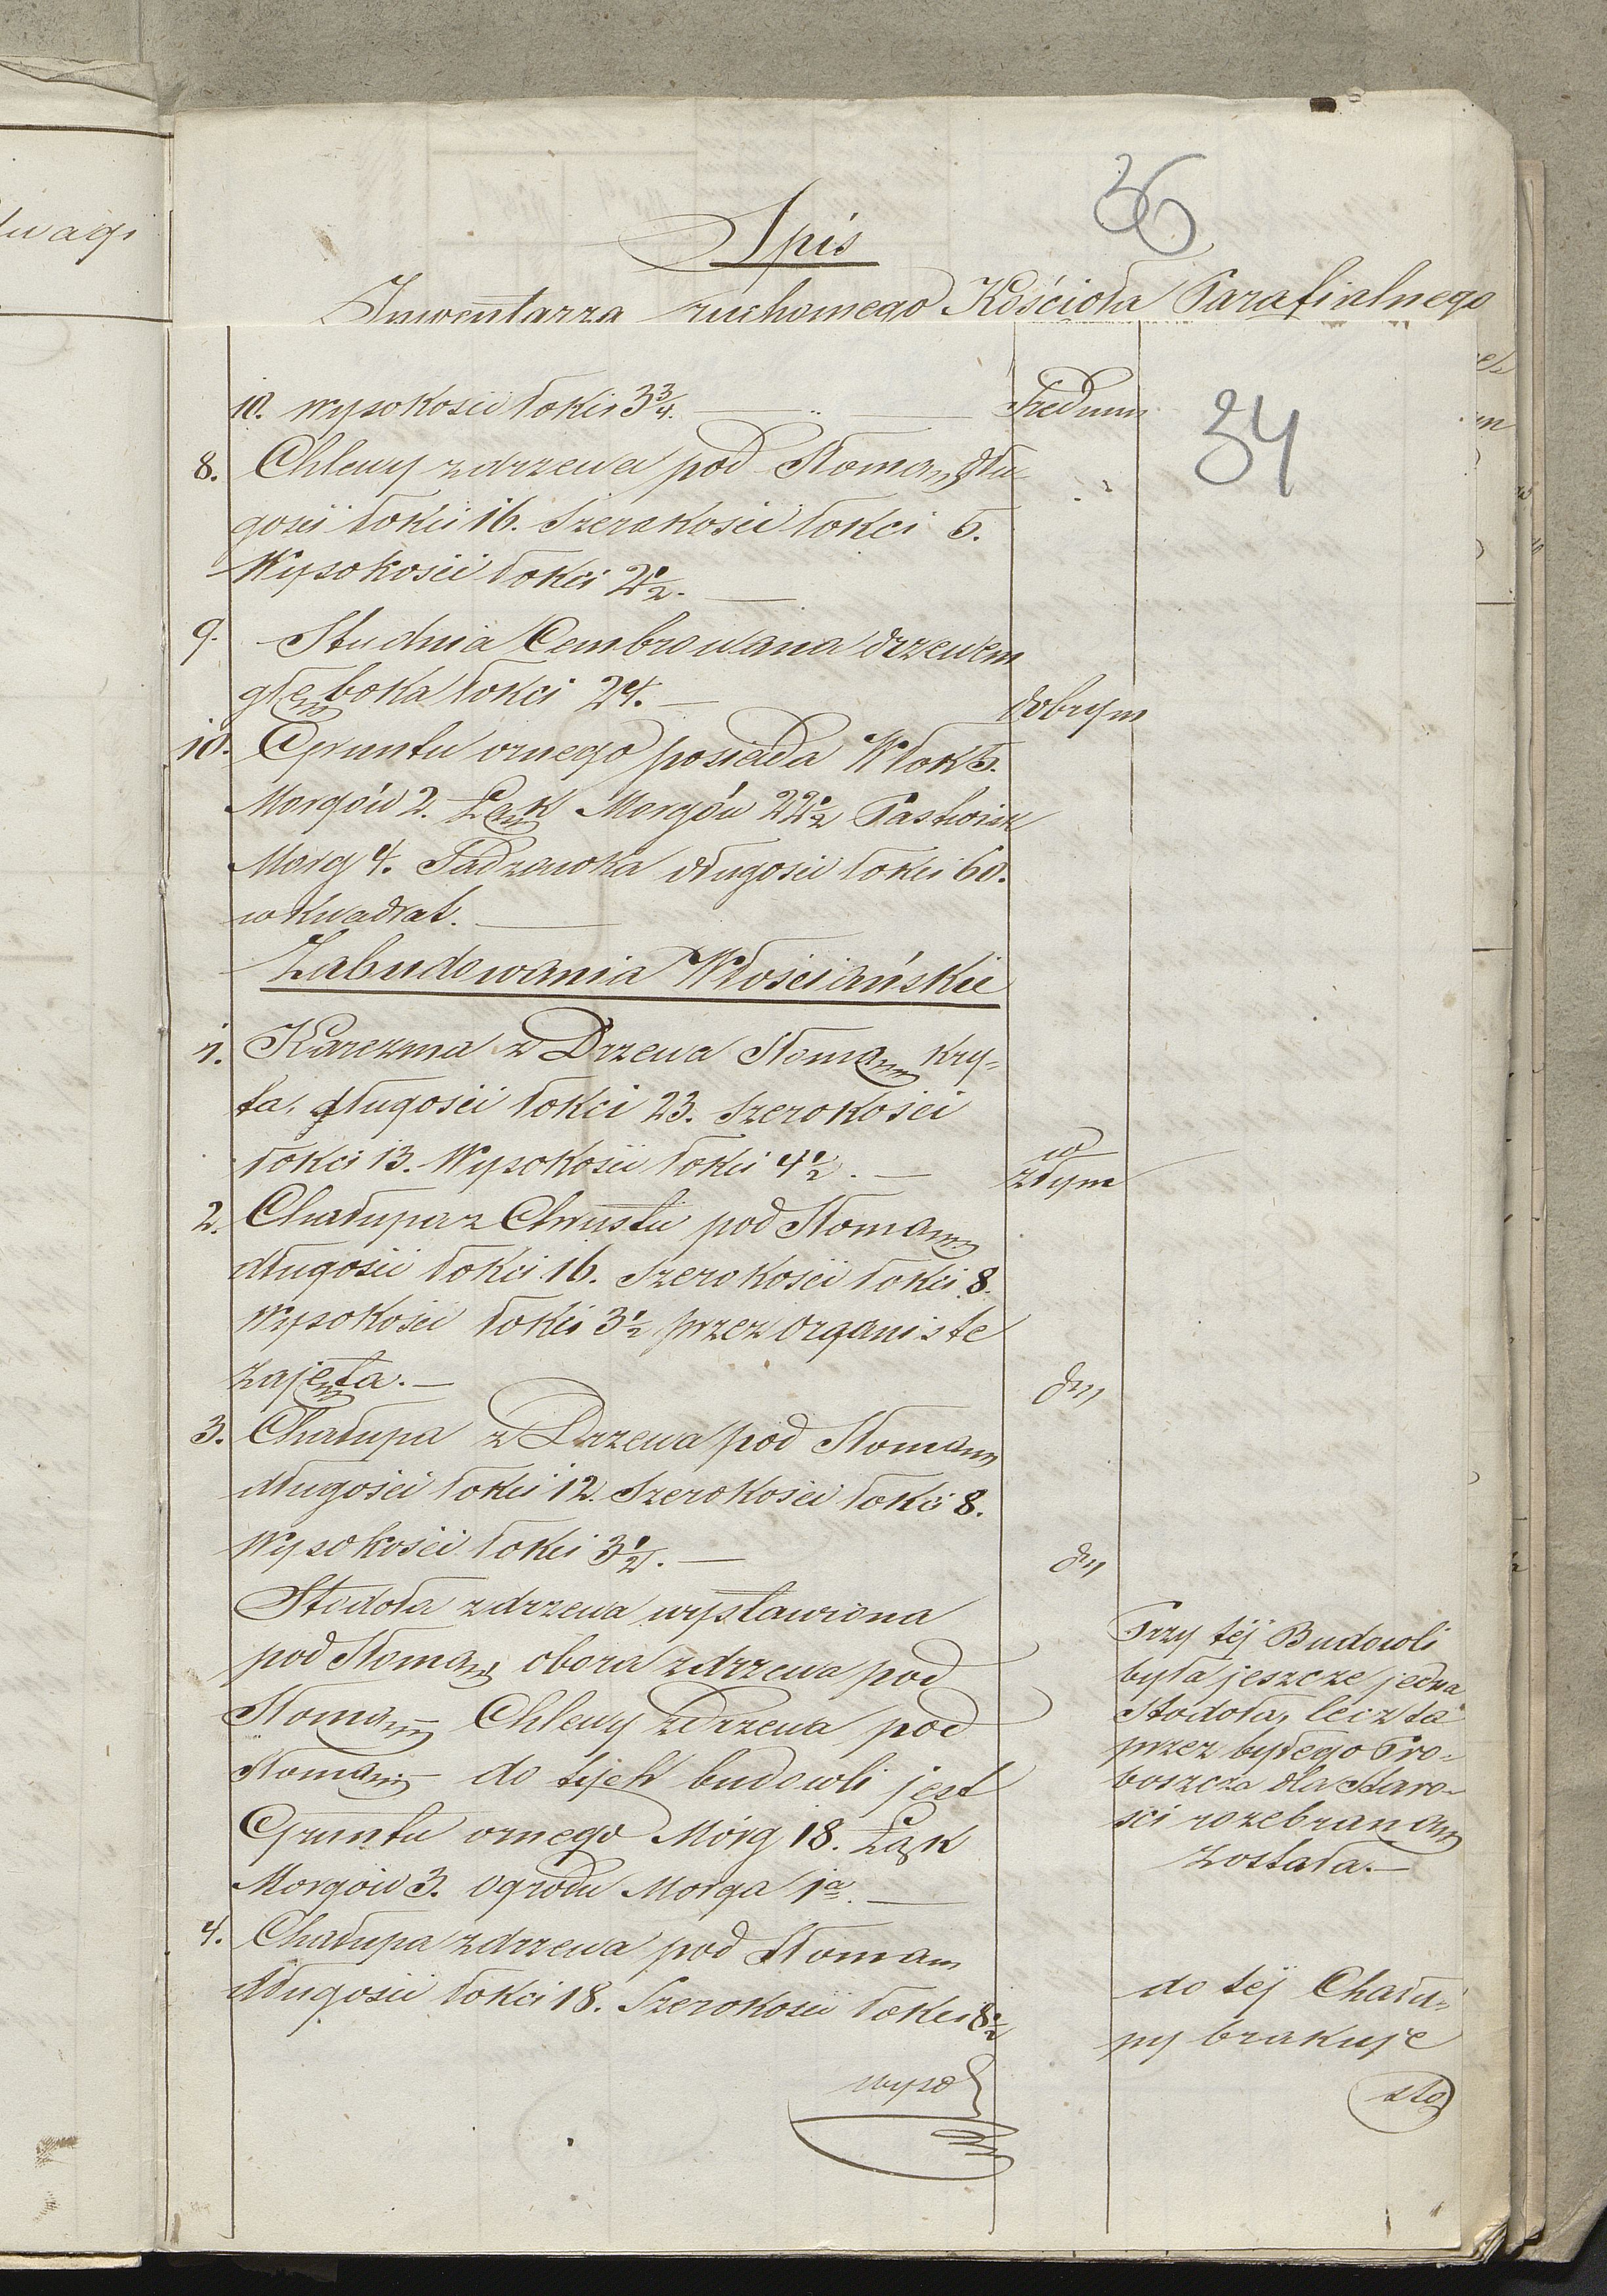 36
Spis
Inwentarza ruchomego Kościoła Parafialnego
Uwagi
34
10. wysokości łokci 3 3/4. średnim
8. Chlewy z drzewa pod Słomą dłu-
gości łokci 16. Szerokości łokci 5.
Wysokości łokci 2 1/2.
9. Studnia Cembrowana drzewem
głęboka łokci 24. dobrym
10. Gruntu ornego posiada Włok
Morgów 2. Łąk Morgów 22 1/2 Pastwisk
Morg 4. Sadzawka długości łokci 60.
w kwadrat.
Zabudowania Włościańskie
1. Karczma z Drzewa Słomą kry-
ta, długości łokci 23. Szerokości
łokci 13. Wysokości łokci 4 1/2. w złym
2. Chałupa z Chrustu pod Słomą
długości łokci 16. Szerokości łokci 8.
Wysokości łokci 3 1/2 przez organiste
zajęta.
3. Chałupa z Drzewa pod Słomą
długości łokci 12. Szerokości łokci 8.
Wysokości łokci 3 1/2.
Stodoła z drzewa wystawiona
pod Słomą, obora z drzewa pod
Słomą Chlewy z Drzewa pod
Słomą do tych budowli jest
Gruntu ornego Mórg 18. Łąk
Morgów 3. ogrodu Morga 1a.
Przy téj Budowli
była jeszcze jedna
Stodoła, lecz ta
przez byłego Pro-
boszcza dla Staro-
ści rozebraną
została.
4. Chałupa z drzewa pod Słomą
długości łokci 18. Szerokości łokci 8 1/2
wyso
do téj Chału-
py brakuje
sto